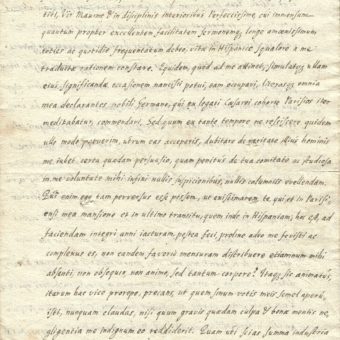 tioſ, Vir Maxime & in disciplinis interioribus Perfectissime, cui immensum
quantum propter excellentem facilitatem sermonemq, longe amœnissimum,
toties ac quotidie, frequentatum debeo, vitæ in Hispanico squalore a me
traductæ rationem constare. Equidem, quod ad me attinet, simulatq, ullam
eius significandæ occasionem nancisci potui, eam occupavi, literasq, omnia
mea declarantes nobili Germano, qui ex legati Cæsarei cohorte Parisios iter
meditabatur, commendavi. Sed quum ex tanto tempore ne resciscere quidem
ullo modo potuerim, utrum eas acceperis, dubitare de veritate illius hominis
me iubet certa quædam persuasio, quam penitus de tua comitate ac studiosa
in me voluntate mihi infixi nullis suspicionibus, nullis calumniis evellendam.
Aut enim ego tam perversus esse possem, ut existimarem, te, qui et in Parisi-
ensi mea mansione et in ultimo transitu, quem inde in Hispaniam, hac ad
faciendam integri anni iacturam, pestea feci, prolixe adeo me fovisti ac
complexus es, non eandem favoris mensuram distribuere etiamnum mihi
absenti, non obsequio non animo, sed tantum corpore? Itaq, sic animatus,
iterum hac vice prorepo, precans, ut quem sinum votis meis semel aperu-
isti, nunquam claudas, nisi quum gravis quædam culpa & bonæ mentis ne-
gligentia me indignum eo reddiderit. Quam uti scias summa industria